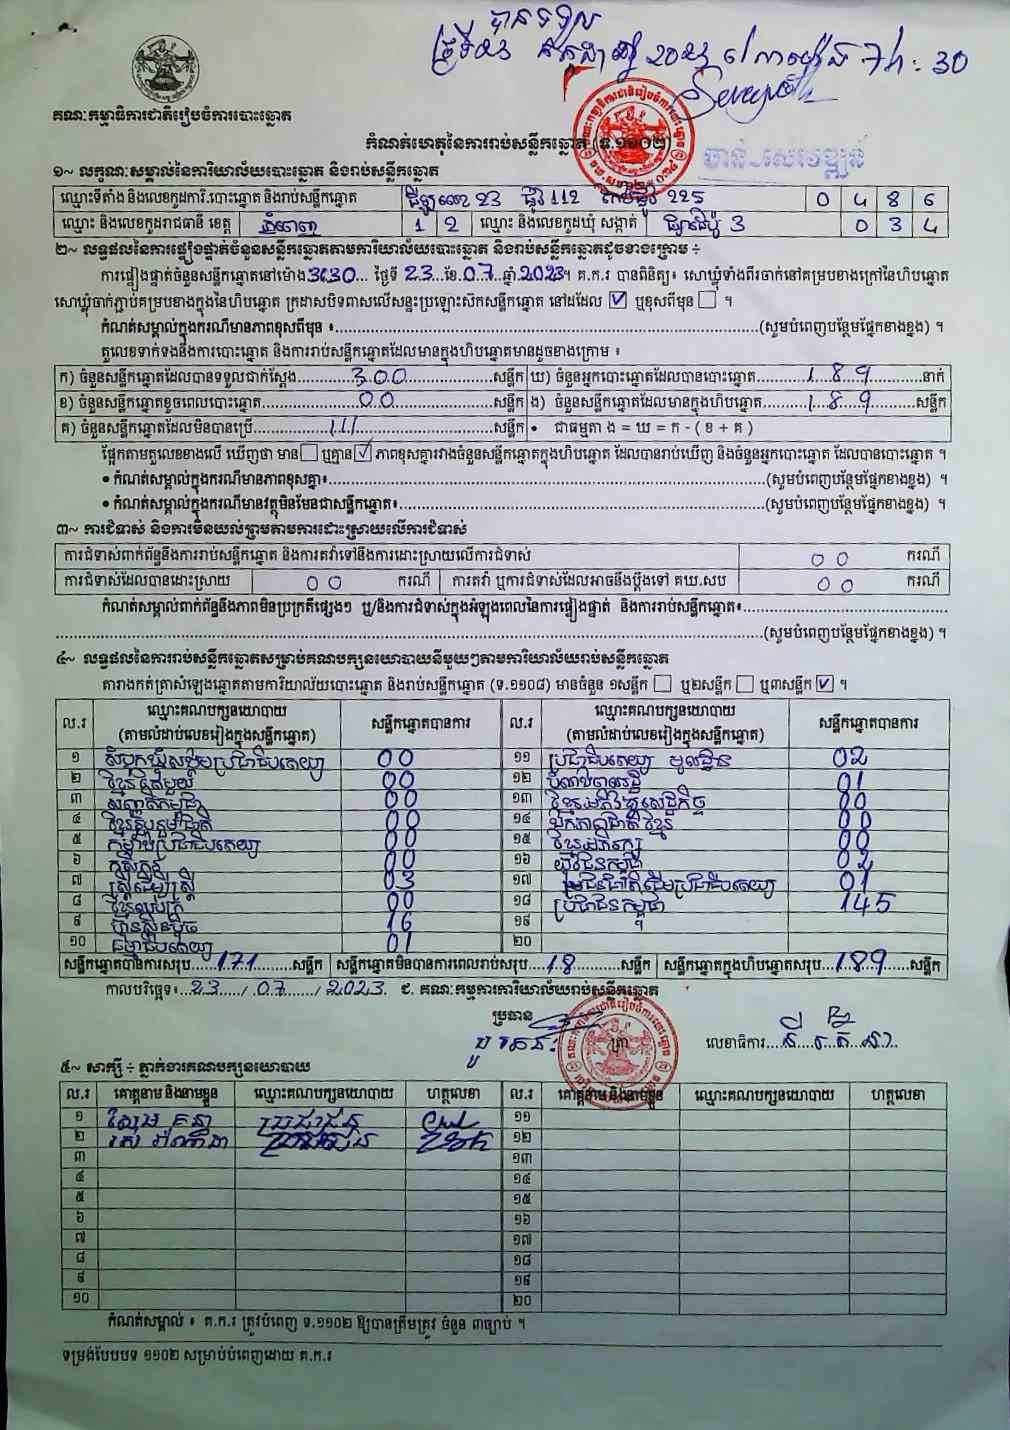 បានទទួល
ថ្ងៃទី២៣ ខែកក្កដា ឆ្នាំ ២០២៣ វេលាម៉ោង 7h:30
គណៈកម្មាធិការជាតិរៀបចំការបោះឆ្នោត
កំណត់ហេតុនៃការរាប់សន្លឹកឆ្នោត (ទ.១១០២)
១~ លក្ខណៈសម្គាល់នៃការិយាល័យបោះឆ្នោត និងរាប់សន្លឹកឆ្នោត
ឈ្មោះទីតាំង និងលេខកូដការិ.បោះឆ្នោត និងរាប់សន្លឹកឆ្នោត 23 ផ្លូវ 112 កាច់ផ្លូវ 225 0 4 8 6
ឈ្មោះ និងលេខកូដរាជធានី ខេត្ត ភ្នំពេញ 1 2 ឈ្មោះ និងលេខកូដឃុំ សង្កាត់ ផ្សារដេប៉ូ 3 0 3 4
២~ លទ្ធផលនៃការផ្ទៀងផ្ទាត់ចំនួនសន្លឹកឆ្នោតតាមការិយាល័យបោះឆ្នោត និងរាប់សន្លឹកឆ្នោតដូចខាងក្រោម ÷
ការផ្ទៀងផ្ទាត់ចំនួនសន្លឹកឆ្នោតនៅម៉ោង 3:30 ថ្ងៃទី 23 ខែ 07 ឆ្នាំ 2023។ គ.ក.រ បានពិនិត្យ៖ សោឃ្លុំទាំងពីរចាក់នៅគម្របខាងក្រៅនៃហិបឆ្នោត
សោឃ្លុំចាក់ភ្ជាប់គម្របខាងក្នុងនៃហិបឆ្នោត ក្រដាសបិទពាសលើសន្ទះប្រឡោះសិកសន្លឹកឆ្នោត នៅដដែល ☑ ឬខុសពីមុន ☐ ។
កំណត់សម្គាល់ក្នុងករណីមានភាពខុសពីមុន ៖ (សូមបំពេញបន្ថែមផ្នែកខាងខ្នង) ។
តួលេខទាក់ទងនឹងការបោះឆ្នោត និងការរាប់សន្លឹកឆ្នោតដែលមានក្នុងហិបឆ្នោតមានដូចខាងក្រោម ៖
ក) ចំនួនសន្លឹកឆ្នោតដែលបានទទួលជាក់ស្តែង 300 សន្លឹក ឃ) ចំនួនអ្នកបោះឆ្នោតដែលបានបោះឆ្នោត 189 នាក់
ខ) ចំនួនសន្លឹកឆ្នោតខូចពេលបោះឆ្នោត 00 សន្លឹក ង) ចំនួនសន្លឹកឆ្នោតដែលមានក្នុងហិបឆ្នោត 189 សន្លឹក
គ) ចំនួនសន្លឹកឆ្នោតដែលមិនបានប្រើ 111 សន្លឹក • ជាធម្មតា ង = ឃ = ក - ( ខ + គ )
ផ្អែកតាមតួលេខខាងលើ ឃើញថា មាន ☐ ឬគ្មាន ☑ ភាពខុសគ្នារវាងចំនួនសន្លឹកឆ្នោតក្នុងហិបឆ្នោត ដែលបានរាប់ឃើញ និងចំនួនអ្នកបោះឆ្នោត ដែលបានបោះឆ្នោត ។
• កំណត់សម្គាល់ក្នុងករណីមានភាពខុសគ្នា៖ (សូមបំពេញបន្ថែមផ្នែកខាងខ្នង) ។
• កំណត់សម្គាល់ក្នុងករណីមានវត្ថុមិនមែនជាសន្លឹកឆ្នោត៖ (សូមបំពេញបន្ថែមផ្នែកខាងខ្នង) ។
៣~ ការជំទាស់ និងការមិនយល់ព្រមតាមការដោះស្រាយលើការជំទាស់
ការជំទាស់ពាក់ព័ន្ធនឹងការរាប់សន្លឹកឆ្នោត និងការតវ៉ាទៅនឹងការដោះស្រាយលើការជំទាស់ 00 ករណី
ការជំទាស់ដែលបានដោះស្រាយ 00 ករណី ការតវ៉ា ឬការជំទាស់ដែលអាចនឹងប្តឹងទៅ គឃ.សប 00 ករណី
កំណត់សម្គាល់ពាក់ព័ន្ធនឹងភាពមិនប្រក្រតីផ្សេងៗ ឬ/និងការជំទាស់ក្នុងអំឡុងពេលនៃការផ្ទៀងផ្ទាត់ និងការរាប់សន្លឹកឆ្នោត៖
(សូមបំពេញបន្ថែមផ្នែកខាងខ្នង) ។
៤~ លទ្ធផលនៃការរាប់សន្លឹកឆ្នោតសម្រាប់គណបក្សនយោបាយនីមួយៗតាមការិយាល័យរាប់សន្លឹកឆ្នោត
តារាងកត់ត្រាសំឡេងឆ្នោតតាមការិយាល័យបោះឆ្នោត និងរាប់សន្លឹកឆ្នោត (ទ.១១០៨) មានចំនួន ១សន្លឹក ☐ ឬ២សន្លឹក ☐ ឬ៣សន្លឹក ☑ ។
ល.រ ឈ្មោះគណបក្សនយោបាយ (តាមលំដាប់លេខរៀងក្នុងសន្លឹកឆ្នោត) សន្លឹកឆ្នោតបានការ ល.រ ឈ្មោះគណបក្សនយោបាយ (តាមលំដាប់លេខរៀងក្នុងសន្លឹកឆ្នោត) សន្លឹកឆ្នោតបានការ
១ សំបុកឃ្មុំសង្គមប្រជាធិបតេយ្យ 00 ១១ ប្រជាធិបតេយ្យ មូលដ្ឋាន 02
២ ខ្មែរតែមួយ 00 ១២ 01
៣ សញ្ជាតិកម្ពុជា 00 ១៣ ខ្មែរអភិវឌ្ឍសេដ្ឋកិច្ច 00
៤ ខ្មែររួបរួមជាតិ 00 ១៤ ឯកភាពជាតិខ្មែរ 00
៥ កម្លាំងប្រជាធិបតេយ្យ 00 ១៥ ខ្មែរអភិរក្ស 00
៦ កសិករ 00 ១៦ យុវជនកម្ពុជា 02
៧ ស្រ្តីដើម្បីស្រ្តី 03 ១៧ ជនជាតិដើមប្រជាធិបតេយ្យ 01
៨ 00 ១៨ ប្រជាជនកម្ពុជា 145
៩ ហ៊្វុនស៊ិនប៉ិច 16 ១៩
១០ ធម្មាធិបតេយ្យ 01 ២០
សន្លឹកឆ្នោតបានការសរុប 171 សន្លឹក សន្លឹកឆ្នោតមិនបានការពេលរាប់សរុប 18 សន្លឹក សន្លឹកឆ្នោតក្នុងហិបឆ្នោតសរុប 189 សន្លឹក
កាលបរិច្ឆេទ៖ 23/07/2023. ជ. គណៈកម្មការការិយាល័យរាប់សន្លឹកឆ្នោត
ប្រធាន ត្រា លេខាធិការ
៥~ សាក្សី ÷ ភ្នាក់ងារគណបក្សនយោបាយ
ល.រ គោត្តនាម និងនាមខ្លួន ឈ្មោះគណបក្សនយោបាយ ហត្ថលេខា ល.រ គោត្តនាម និងនាមខ្លួន ឈ្មោះគណបក្សនយោបាយ ហត្ថលេខា
១ ប្រជាជន ១១
២ ១២
៣ ១៣
៤ ១៤
៥ ១៥
៦ ១៦
៧ ១៧
៨ ១៨
៩ ១៩
១០ ២០
កំណត់សម្គាល់ ៖ គ.ក.រ ត្រូវបំពេញ ទ.១១០២ ឱ្យបានត្រឹមត្រូវ ចំនួន ៣ច្បាប់ ។
ទម្រង់បែបបទ ១១០២ សម្រាប់បំពេញដោយ គ.ក.រ